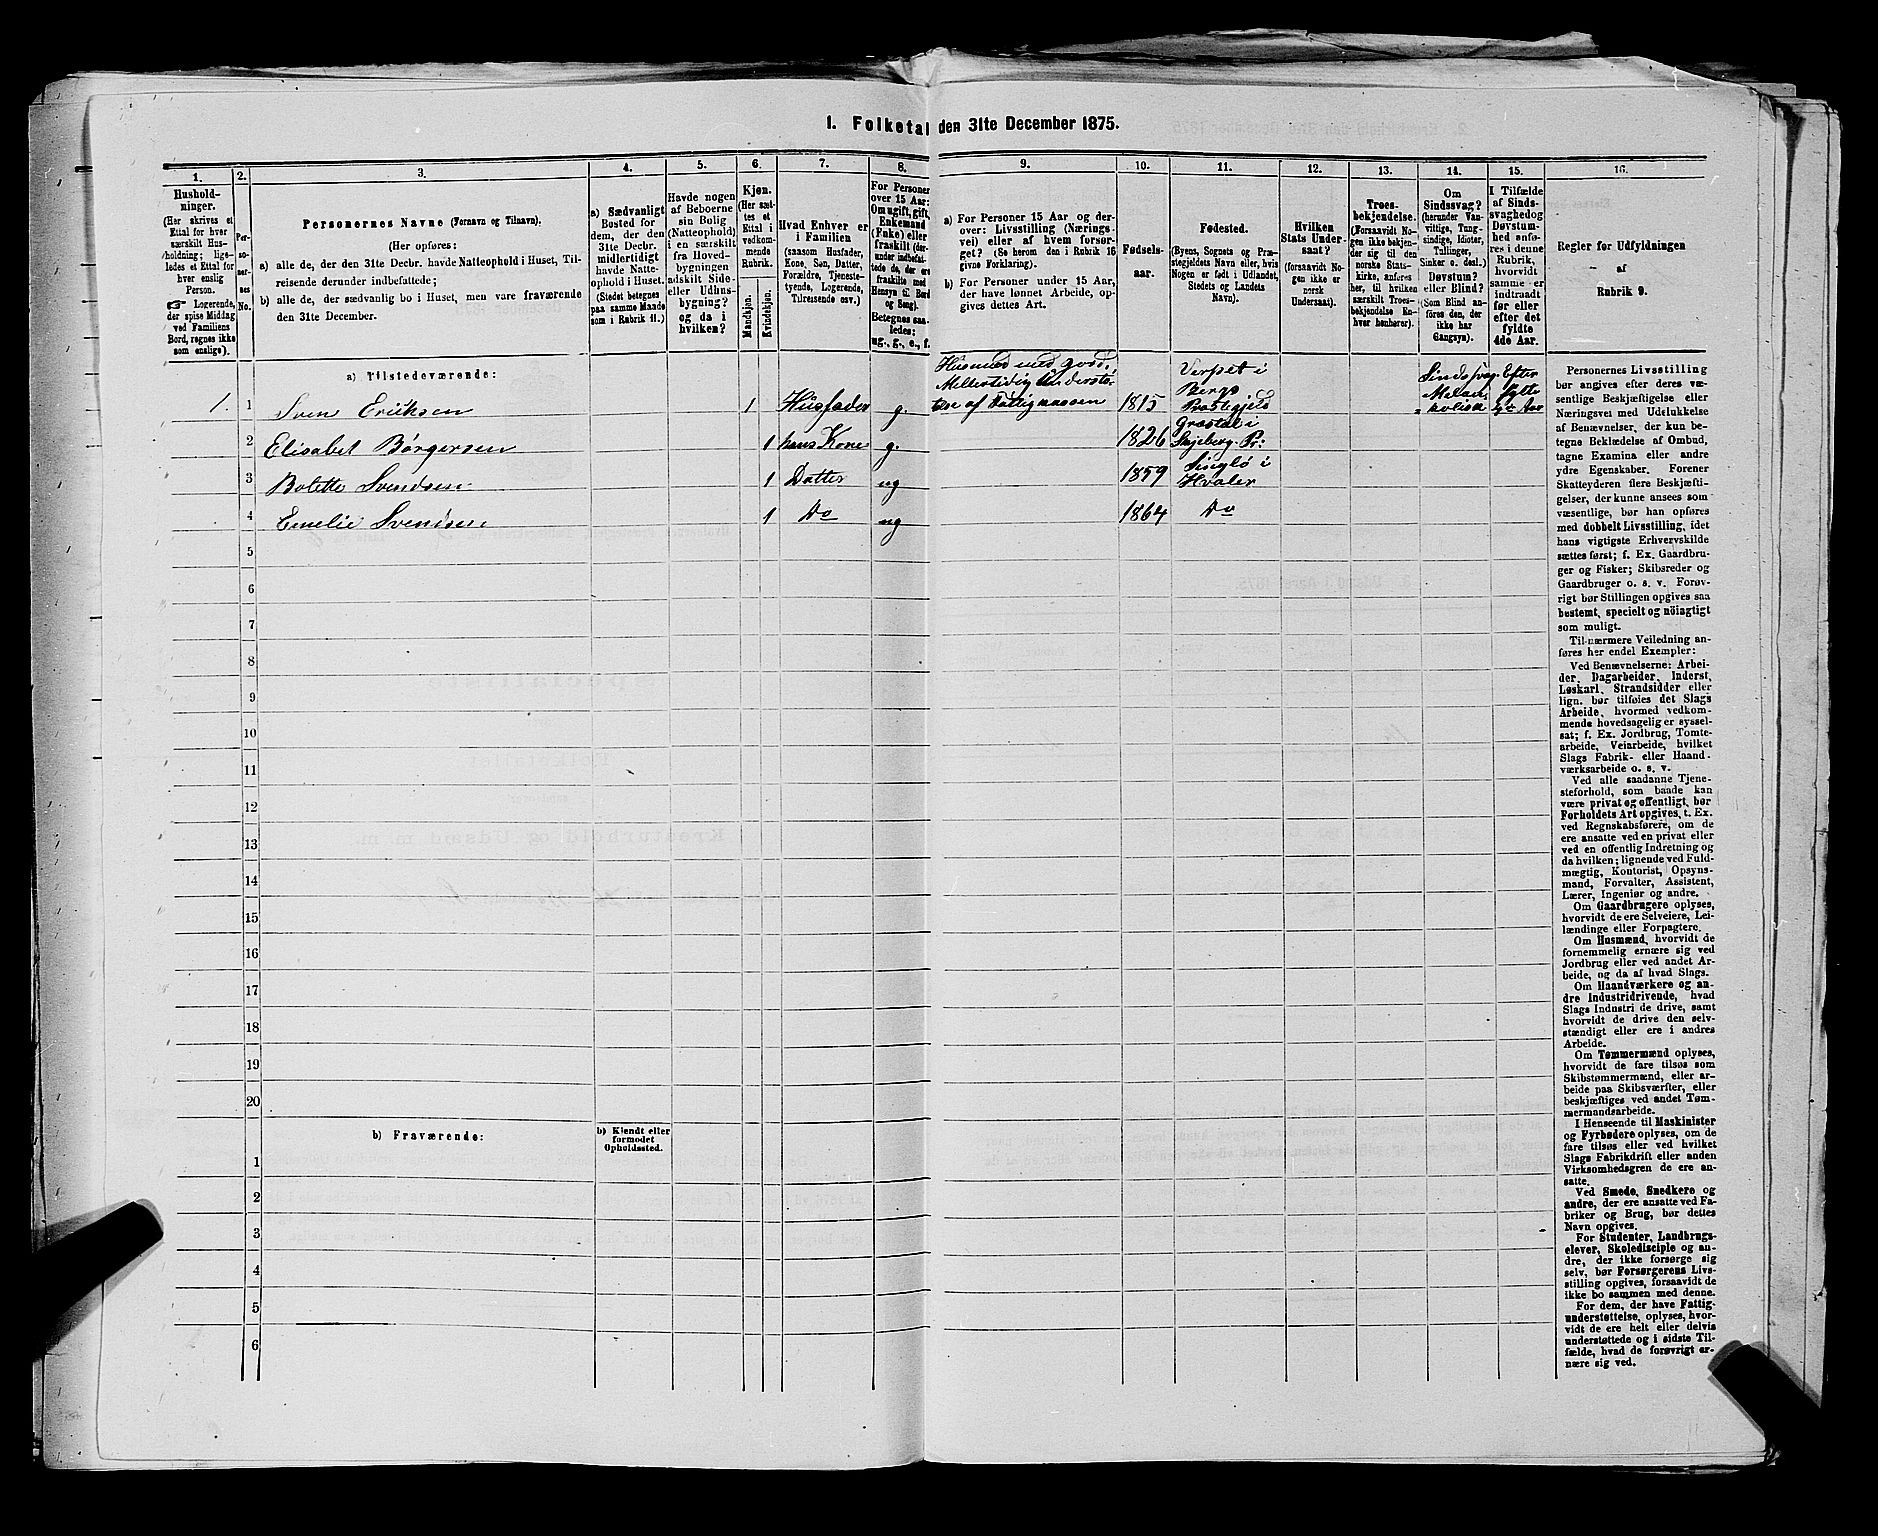 1. Folketal den 31te December 1875.
1.
Hushold-
ninger.
(Her skrives et
Ettal for hver
særskilt Hus-
holdning; lige-
ledes et Ettal for
hver enslig
Person.
☞ Logerende,
der spise Middag
ved Familiens
Bord, regnes ikke
som enslige).
2.
Per-
so-
ner-
nes
No.
3.
Personernes Navne (Fornavn og Tilnavn).
(Her opføres:
a) alle de, der den 31te Decbr. havde Natteophold i Huset, Til-
reisende derunder indbefattede;
b) alle de, der sædvanlig bo i Huset, men vare fraværende
den 31te December.
4.
a) Sædvanligt
Bosted for
dem, der den
31te Decbr.
midlertidigt
havde Natte-
ophold i Huset.
(Stedet betegnes
paa samme Maade
som i Rubrik 11.)
5.
Havde nogen
af Beboerne
sin Bolig
(Natteophold)
i en særskilt
fra Hoved-
bygningen
adskilt Side-
eller Udhus-
bygning?
og da i
hvilken?
6.
Kjøn.
(Her sæt-
tes et
Ettal i
vedkom-
mende
Rubrik.
Mandkjøn.
Kvindekjøn.
7.
Hvad Enhver er
i Familien
(saasom Husfader,
Kone, Søn, Datter,
Forældre, Tjeneste-
tyende, Logerende,
Tilreisende osv.)
8.
For Personer
over 15 Aar:
Om ugift, gift,
Enkemand
(Enke) eller
fraskilt (der-
under indbefat-
tede de, der ere
fraskilte med
Hensyn til Bord
og Seng).
Betegnes saa-
ledes:
ug., g., e., f.
9.
a) For Personer 15 Aar og der-
over: Livsstilling (Nærings-
vei) eller af hvem forsør-
get? (Se herom den i Rubrik 16
givne Forklaring).
b) For Personer under 15 Aar,
der have lønnet Arbeide, op-
gives dettes Art.
10.
Fødsels-
aar.
11.
Fødested.
(Byens, Sognets og Præ-
stegjeldets Navn eller, hvis
Nogen er født i Udlandet,
Stedets og Landets
Navn).
12.
Hvilken
Stats Under-
saat?
(forsaavidt No-
gen ikke er
norsk
Undersaat).
13.
Troes-
bekjendelse.
(Forsaavidt No-
gen ikke bekjen-
der sig til den
norske Stats-
kirke, anføres
her, til hvilken
særskilt Troes-
bekjendelse En-
hver henhører).
14.
Om
Sindssvag?
(herunder Van-
vittige, Tung-
sindige, Idioter,
Tullinger,
Sinker o. desl.)
Døvstum?
eller Blind?
(Som Blind an-
føres den, der
ikke har
Gangsyn).
15.
I Tilfælde
af Sinds-
svaghed og
Døvstum-
hed anfø-
res i denne
Rubrik,
hvorvidt
samme er
indtraadt
før eller
efter det
fyldte
4de Aar.
16.
Regler for Udfyldningen
af
Rubrik 9.
a) Tilstedeværende:
1. 1 Sven Eriksen 1 Husfader g. Husmand med Jord, Midlertidig Understøt- telse af Fattigkassen 1815 i Berge Præstegjeld Sindssvag Melan- kolisk Efter fyldte 4de Aar
2 Elisabet Børgersen 1 hans Kone g. 1826 i Skjeberg Pr:
3 Bolette Svendsen 1 Datter ug 1859 Singlø i Hvaler
4 Emelie Svensen 1 Do ug 1864 Do
5
6
7
8
9
10
11
12
13
14
15
16
17
18
19
20
b) Fraværende:
b) Kjendt eller
formodet
Opholdssted.
1
2
3
4
5
6
Personernes Livsstilling
bør angives efter deres væ-
sentlige Beskjæftigelse eller
Næringsvei med Udelukkelse
af Benævnelser, der kun be-
tegne Beklædelse af Ombud,
tagne Examina eller andre
ydre Egenskaber. Forener
Skatteyderen flere Beskjæfti-
gelser, der kunne ansees som
væsentlige, bør han opføres
med dobbelt Livsstilling, idet
hans vigtigste Erhvervskilde
sættes først; f. Ex. Gaardbru-
ger og Fisker; Skibsreder og
Gaardbruger o. s. v. Forøv-
rigt bør Stillingen opgives saa
bestemt, specielt og nöiagtigt
som muligt.
Til nærmere Veiledning an-
føres her endel Exempler:
Ved Benævnelserne: Arbei-
der, Dagarbeider, Inderst,
Løskarl, Strandsidder eller
lign. bør tilføies det Slags
Arbeide, hvormed vedkom-
mende hovedsagelig er syssel-
sat; f. Ex. Jordbrug, Tomte-
arbeide, Veiarbeide, hvilket
Slags Fabrik- eller Haand-
værksarbeide o. s. v.
Ved alle saadanne Tjene-
steforhold, som baade kan
være privat og offentligt, bør
Forholdets Art opgives, t. Ex.
ved Regnskabsførere, om de
ere ansatte ved en privat eller
ved en offentlig Indretning og
da hvilken; lignende ved Fuld-
mægtig, Kontorist, Opsyns-
mand, Forvalter, Assistent,
Lærer, Ingeniør og andre.
Om Gaardbrugere oplyses,
hvorvidt de ere Selveiere, Lei-
lændinge eller Forpagtere.
Om Husmænd, hvorvidt de
fornemmelig ernære sig ved
Jordbrug eller ved andet Ar-
beide, og da af hvad Slags.
Om Haandværkere og an-
dre Industridrivende, hvad
Slags Industri de drive, samt
hvorvidt de drive den selv-
stændigt eller ere i andres
Arbeide.
Om Tømmermænd oplyses,
hvorvidt de fare tilsøs som
Skibstømmermænd, eller ar-
beide paa Skibsværfter, eller
beskjæftiges ved andet Tøm-
mermandsarbeide.
I Henseende til Maskinister
og Fyrbødere oplyses, om de
fare tilsøs eller ved hvilket
Slags Fabrikdrift eller anden
Virksomhedsgren de ere an-
satte.
Ved Smede, Snedkere og
andre, der ere ansatte ved Fa-
briker og Brug, bør dettes
Navn opgives.
For Studenter, Landbrugs-
elever, Skoledisciple og an-
dre, der ikke forsørge sig
selv, bør Forsørgerens Livs-
stilling opgives, forsaavidt de
ikke bo sammen med denne.
For dem, der have Fattig-
understøttelse, oplyses, hvor-
vidt de ere helt eller delvis
understøttede og i sidste Til-
fælde, hvad de forøvrigt er-
nære sig ved.